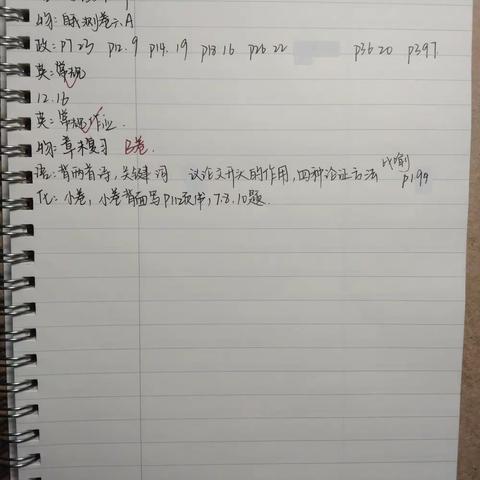 物:自我测卷六A
政:P7 23 P12.9 P14.19 P18 16 P26.22 P36 20 P39 7
英:常规
12.16
英:常规作业.
物:章末复习 B卷.
语:背两首诗,关键词 议论文开头的作用,四种论证方法 比喻 P199
化:小卷,小卷背面写P112获作,7.8.10题.